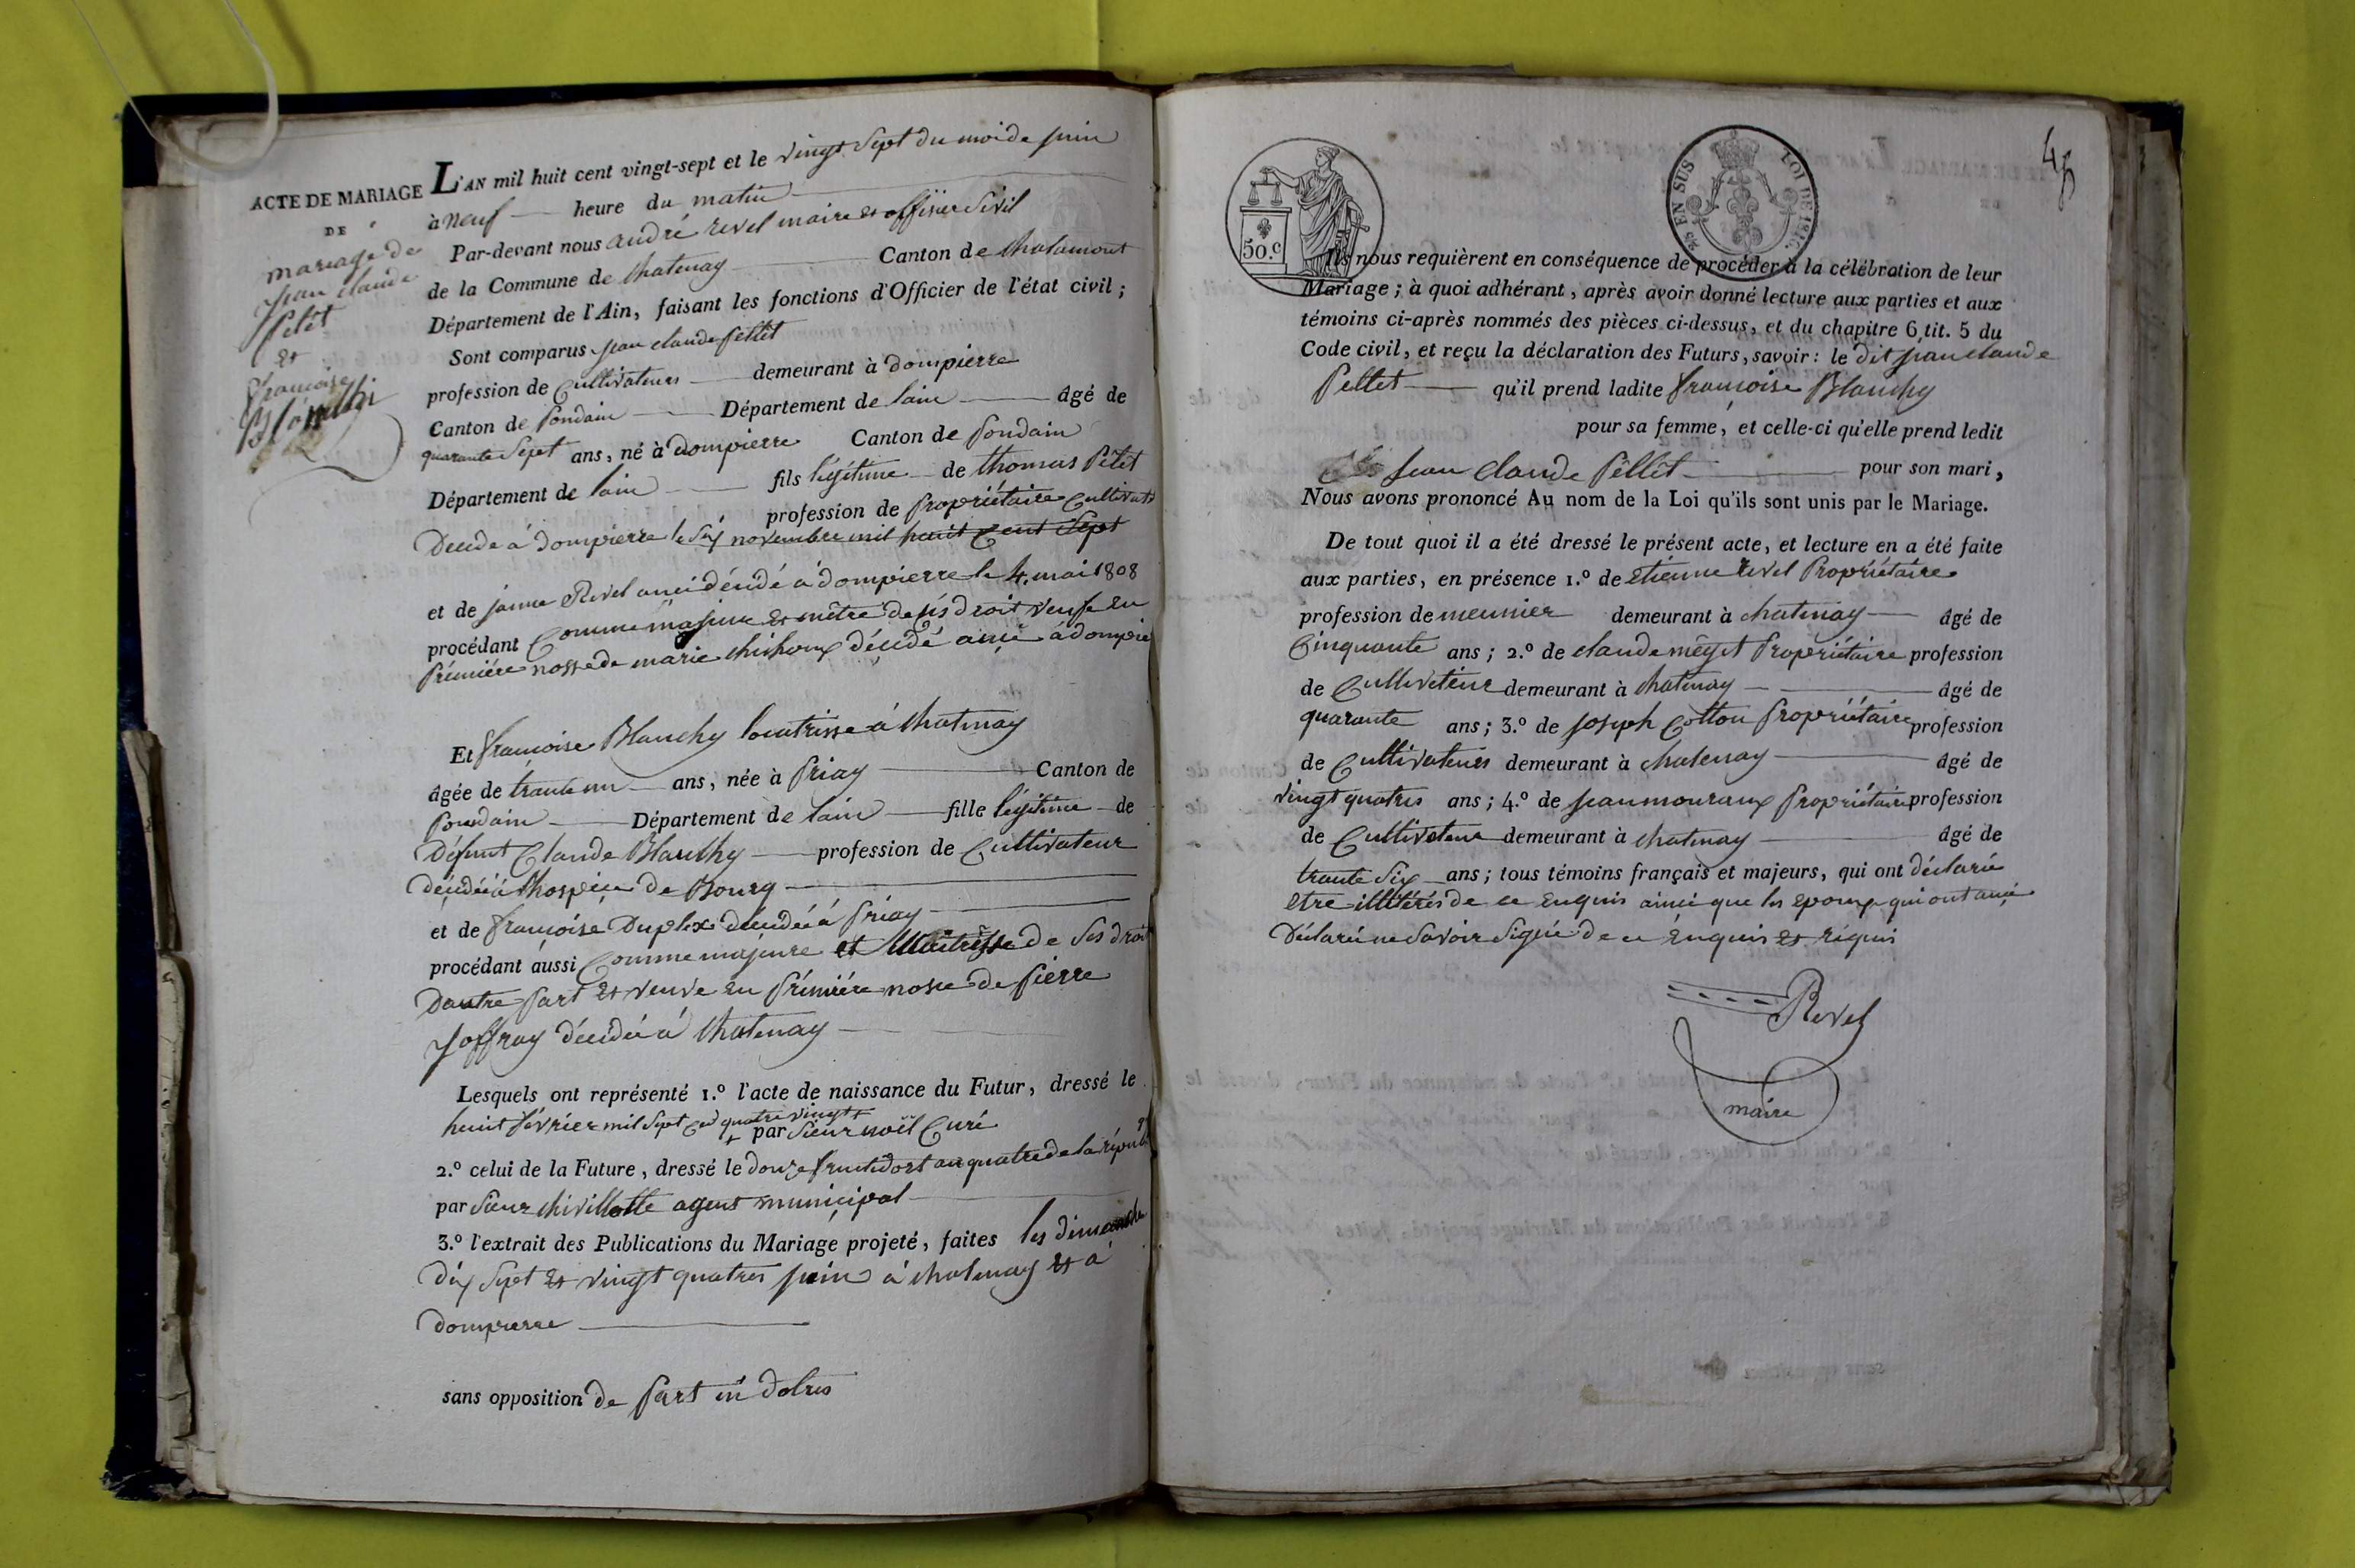 ACTE DE MARIAGE
DE
mariage de
jean claude
Pelêt
et
françoise
L'AN mil huit cent vingt-sept et le vingt sept du moi de juin
à neuf heure du matin
Par-devant nous andré revel maire et offisier Sivil
de la Commune de Chatenay Canton de Chalamont
Département de l'Ain, faisant les fonctions d'Officier de l'état civil ;
Sont comparus jean claude pellêt
profession de Cultivateurs demeurant à dompierre
Canton de Pondain Département de lain âgé de
quarante Sept ans, né à dompierre Canton de pondain
Département de lain fils légitime de thomas Pelêt
profession de propriétaire Cultivat
Décéde à dompierre le Six novembre mil huit Cent Sept
et de janne Revel décédé à dompierre le 4 mai 1808
procédant Comme majeur et mêtre de Sés droit veuf en
Prémiére nosse de marie décédé à dompie
Et françoise Blanchy locatrisse à Chatenay
âgée de trante un ans, née à Priay Canton de
Pondain Département de lain fille légitime de
Défunt Claude Blanchy profession de Cultivateur
décédé à lhospice de Bourg
et de françoise Duplex décédé à Priay
procédant aussi Comme majeure et Maîtresse de Ses droit
Dautre part et veuve en prémiére nosse de pierre
Joffray décédé à Chatenay
Lesquels ont représenté 1.º l'acte de naissance du Futur, dressé le
huit février mil Sept Cent quatre vingt +
+ par Sieur noël Curé
2.º celui de la Future, dressé le douze fructidort an quatre de la répub
par Sieur chivillotte agent municipal
3.º l'extrait des Publications du Mariage projeté, faites les dimanche
dix Sept et vingt quatres juin à chatenay et à
dompierre
sans opposition de part
50.c
25 EN SUS
LOI DE 1816.
Ils nous requièrent en conséquence de procéder à la célébration de leur
Mariage ; à quoi adhérant, après avoir donné lecture aux parties et aux
témoins ci-après nommés des pièces ci-dessus, et du chapitre 6, tit. 5 du
Code civil, et reçu la déclaration des Futurs, savoir : le dit jean claude
Pellet qu'il prend ladite françoise Blanchy
pour sa femme, et celle-ci qu'elle prend ledit
jean claude Pellêt pour son mari,
Nous avons prononcé Au nom de la Loi qu'ils sont unis par le Mariage.
De tout quoi il a été dressé le présent acte, et lecture en a été faite
aux parties, en présence 1.º de Etienne Revel Propriétaire
profession de meunier demeurant à chatenay âgé de
Cinquante ans ; 2.º de claude Propriétaire profession
de Cultivateur demeurant à chatenay âgé de
quarante ans ; 3.º de joseph Cotton propriétaire profession
de Cultivateurs demeurant à chatenay âgé de
vingt quatres ans ; 4.º de jean mouraux propriétaire profession
de Cultivateur demeurant à chatenay âgé de
trante Six ans ; tous témoins français et majeurs, qui ont déclaré
etre illitérés de ce Enquis ainci que les epoux qui ont
déclaré ne Savoir Signé de ce Enquis et réquis
Revel
maire